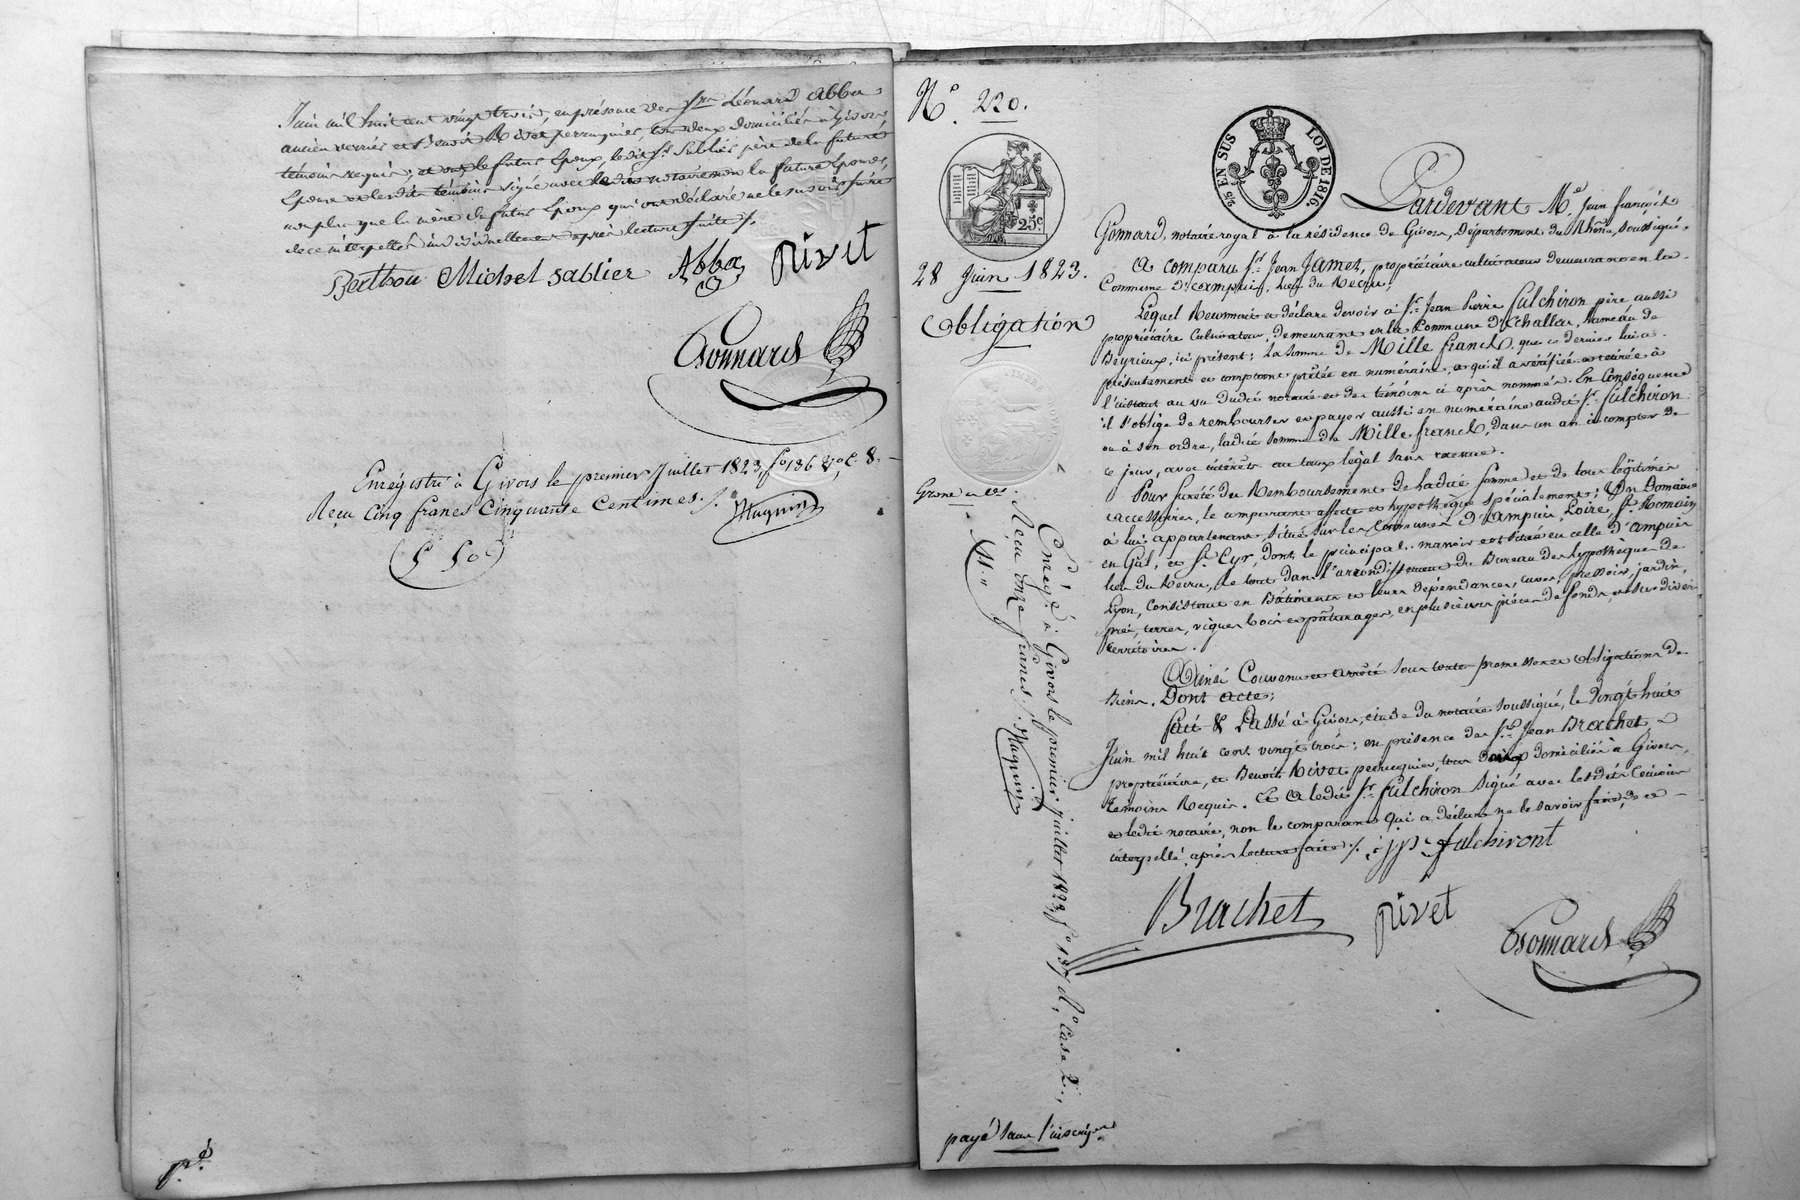 Juin mil huit cent vingt trois, en présence des Srs Léonard Abba
ancien verrier et Benoit Rivet perruquier, tous deux domiciliés à Givors,
témoins requis; le futur Epoux, ledit Sr Sablier père de la future
Epouse et lesdits témoins signé avec le notaire non la future Epouse,
non plus que la mère du futur Epoux qui ont déclaré ne le savoir faire
de ce interpellés individuellement après lecture faite /.
Berthou Michel Sablier Abba Rivet
Gonnard
Enregistré à Givors le premier Juillet 1823, fo 136 Vo, C. 8.
Reçu Cinq francs Cinquante Centimes. /.
Magnin
5 50c
pé.
No. 220.
25c.
28 EN SUS LOI DE 1816
28 Juin 1823.
Obligation
Grosse en 
Pardevant Me. Jean françois
Gonnard, notaire royal à la résidence de Givors, Département du Rhône, soussigné.
A comparu Sr. Jean Jamet, propriétaire cultivateur demeurant en la
Commune d'ampuis, lieu du Recru,
Lequel Reconnait et déclare devoir à Sr. Jean Pierre Fulchiron père aussi
propriétaire Cultivateur, demeurant en la Commune d'Echallas, hameau de
Beyrieux, ici présent; la somme de Mille francs, que ce dernier lui a
présentement et comptant prêtée en numéraire, et qu'il a vérifiée et retirée à
l'instant au vu dudit notaire et des témoins ci après nommés. En Conséquence
il s'oblige de rembourser et payer aussi en numéraire audit Sr. Fulchiron
ou à son ordre, ladite somme de Mille francs, dans un an à compter de
ce jour, avec intérêts au taux légal sans retenue.
Pour sureté du Remboursement de ladite somme et de tous légitimes
accessoires, le comparant affecte et hypothèque spécialement; Un Domaine
à lui appartenant, situé sur les Communes d'Ampuis, Loire, St. Romain
en Gal, et St. Cyr, dont le principal manoir est situé en celle d'ampuis
lieu du Recru, le tout dans l'arrondissement du Bureau des hypothèques de
Lyon, Consistant en Bâtiments et leurs dépendances, cuves, pressoir, jardin,
pré, terres, vignes bois et pâturages, en plusieurs pièces de fonds, et sur divers
territoires.
Ainsi Convenu et arrêté sous toutes promesses et obligations de
Biens. Dont acte;
fait & Passé à Givors, étude du notaire soussigné, le Vingt huit
Juin mil huit cent vingt trois; en présence des Srs Jean Brachet
propriétaire, et Benoit Rivet perruquier, tous deux domiciliés à Givors,
témoins Requis. Et a ledit Sr. Fulchiron signé avec lesdits témoins
et ledit notaire, non le comparant qui a déclaré ne le savoir faire, de ce
interpellé après lecture faite /.
jp fulchiront
Brachet Rivet Gonnard
Enregé. à Givors le premier Juillet 1823, fo 137 Ro, Case 2.,
Reçu onze francs. /. Magnin
11.,,
payé sauf l'inscrip.on